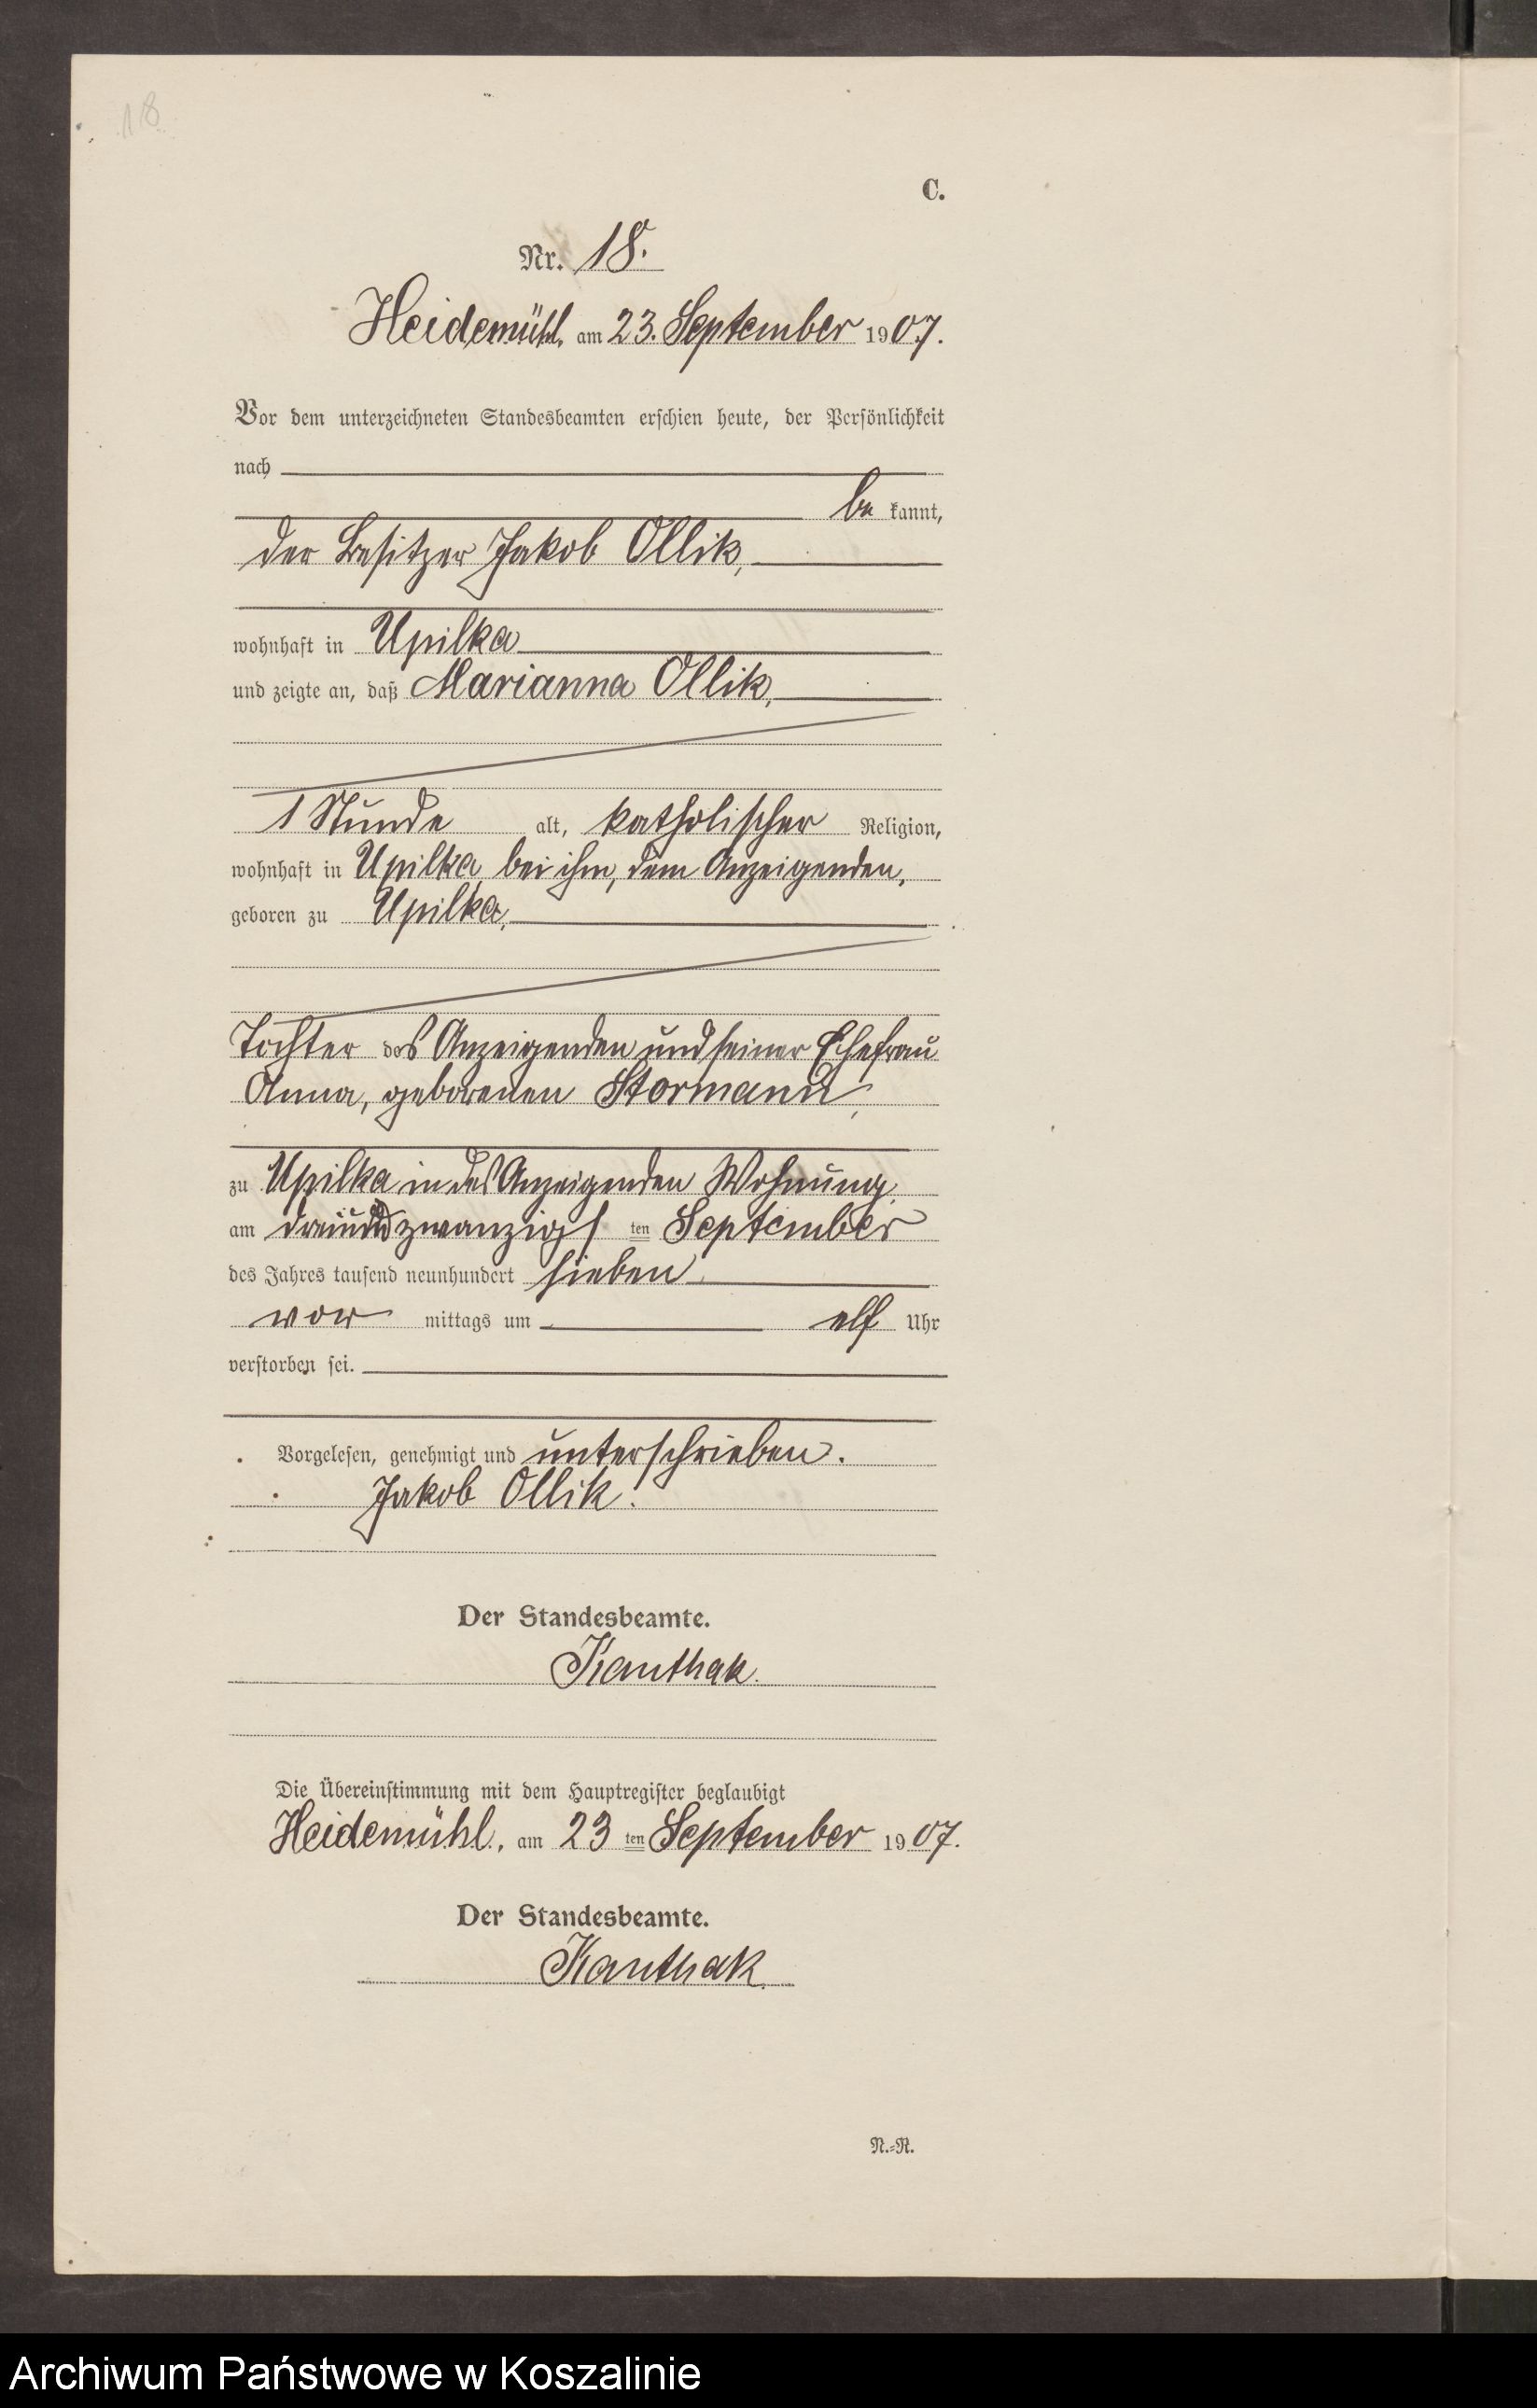 18
C.
Nr. 18.
Heidemühl, am 23. September 1907.
Vor dem unterzeichneten Standesbeamten erschien heute, der Persönlichkeit
nach
be kannt,
der Besitzer Jakob Ollik,
wohnhaft in Upilka
und zeigte an, daß Marianna Ollik,
1 Stunde alt, katholischer Religion,
wohnhaft in Upilka bei ihm, dem Anzeigenden,
geboren zu Upilka,
Tochter des Anzeigenden und seiner Ehefrau
Anna, geborenen Stormann,
zu Upilka in des Anzeigenden Wohnung,
am dreiundzwanzigsten September
des Jahres tausend neunhundert sieben
vor mittags um elf Uhr
verstorben sei.
Vorgelesen, genehmigt und unterschrieben.
Jakob Ollik.
Der Standesbeamte.
Kanthak.
Die Übereinstimmung mit dem Hauptregister beglaubigt
Heidemühl, am 23 ten September 1907.
Der Standesbeamte.
Kanthak.
N.-R.
Archiwum Państwowe w Koszalinie